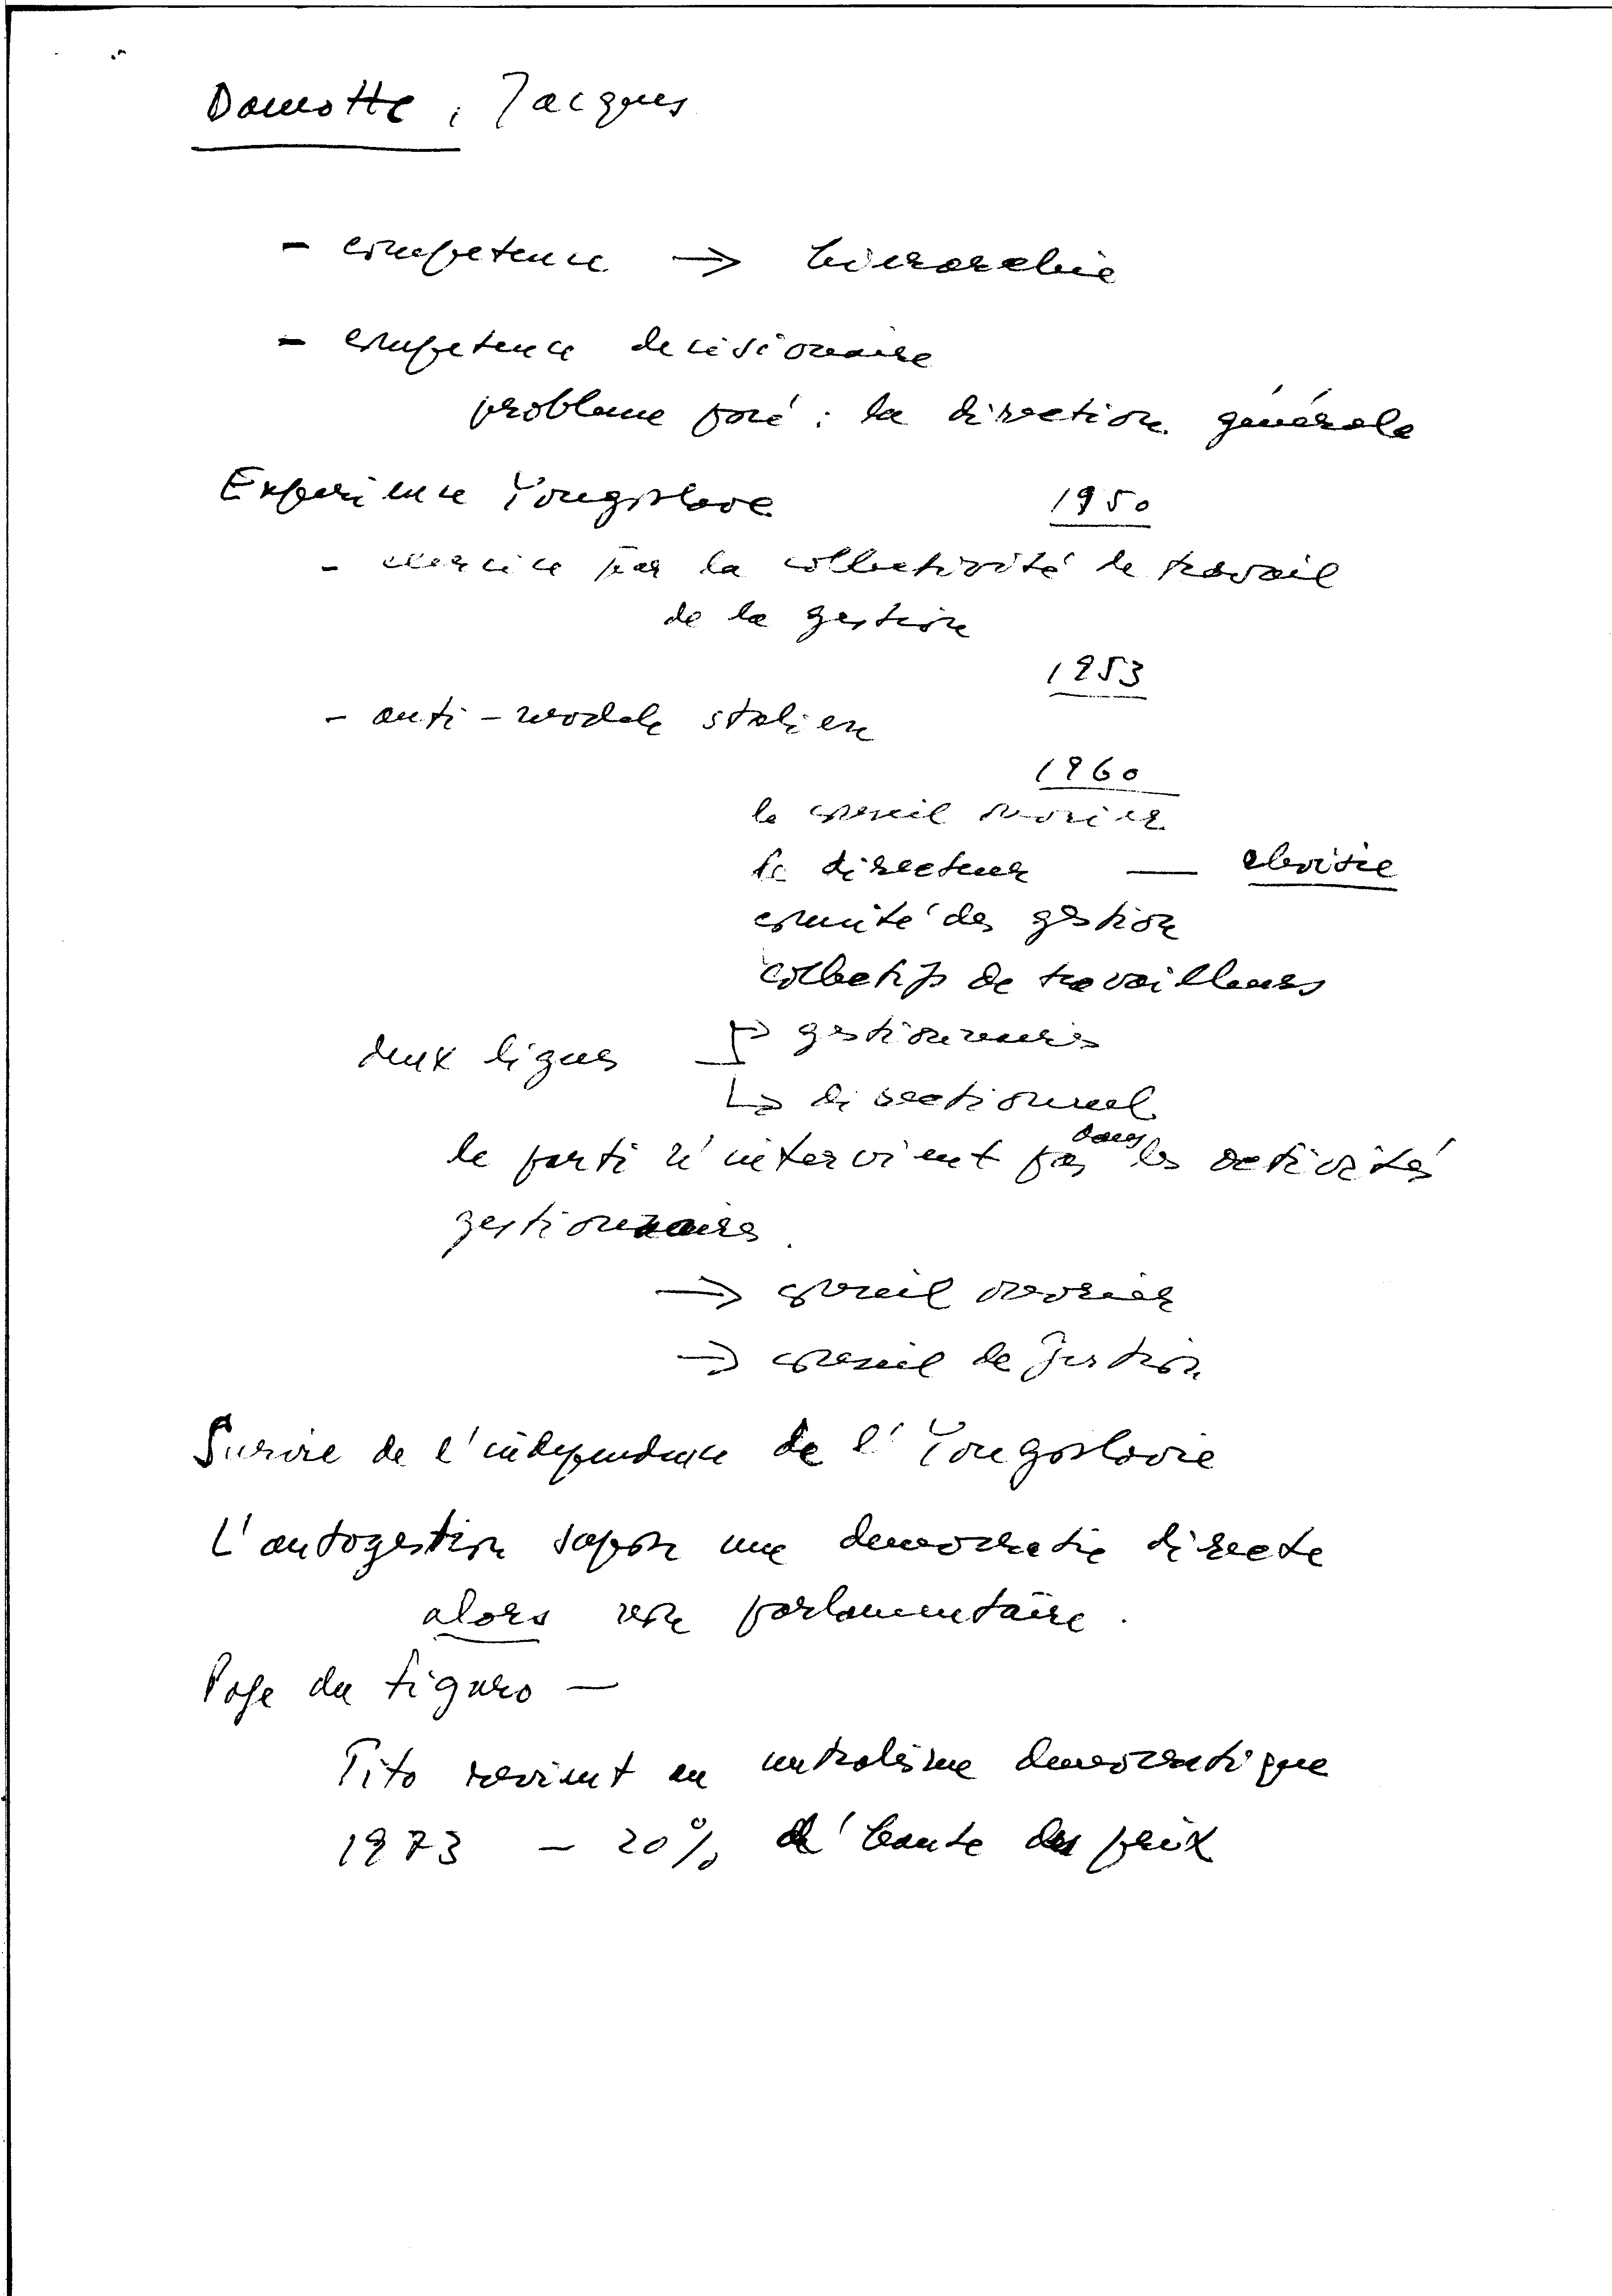 Damotte, Jacques
- competence → hierarchie
- competence decisionaire
probleme posé : la direction générale
Experience Yougoslave 1950
- exercice par la collectivité de travail
de la gestion
1953
- anti-modele stalien
1960
le conseil ouvrier
le directeur —
comité de gestion
collectifs de travailleurs
deux lignes → gestionnaires
↳ directionnel
le parti n'intervient pas dans les activités
gestionnaires.
→ conseil ouvrier
→ conseil de gestion
Survie de l'independence de l'Yougoslavie
L'autogestion suppose une democratie directe
alors reste parlamentaire.
Page du figaro —
Tito revient au centralisme democratique
1973 - 20% d'haute des prix